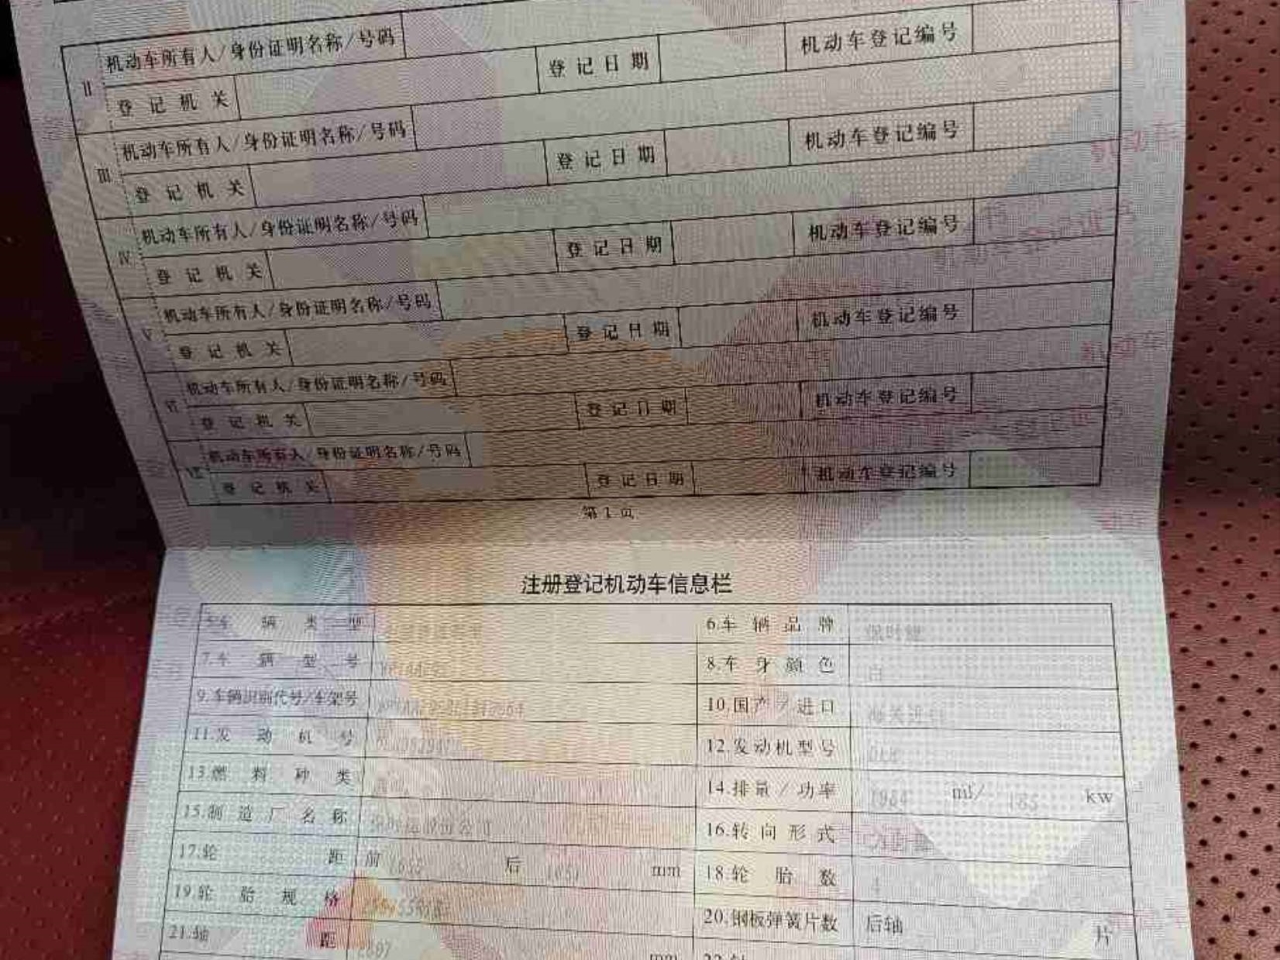 II 机动车所有人/身份证明名称/号码
登记机关 登记日期 机动车登记编号
III 机动车所有人/身份证明名称/号码
登记机关 登记日期 机动车登记编号
IV 机动车所有人/身份证明名称/号码
登记机关 登记日期 机动车登记编号
V 机动车所有人/身份证明名称/号码
登记机关 登记日期 机动车登记编号
VI 机动车所有人/身份证明名称/号码
登记机关 登记日期 机动车登记编号
VII 机动车所有人/身份证明名称/号码
登记机关 登记日期 机动车登记编号
第1页
注册登记机动车信息栏
5.车辆类型 6.车辆品牌 保时捷
7.车辆型号 8.车身颜色 白
9.车辆识别代号/车架号 10.国产/进口
11.发动机号 12.发动机型号
13.燃料种类 14.排量/功率 1984 ml/ 185 kw
15.制造厂名称 16.转向形式
17.轮距 前 1655 后 1651 mm 18.轮胎数 4
19.轮胎规格 20.钢板弹簧片数 后轴 片
21.轴距 2807 mm